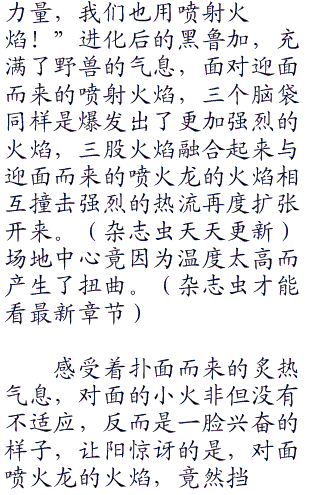 力量，我们也用喷射火
焰！”进化后的黑鲁加，充
满了野兽的气息，面对迎面
而来的喷射火焰，三个脑袋
同样是爆发出了更加强烈的
火焰，三股火焰融合起来与
迎面而来的喷火龙的火焰相
互撞击强烈的热流再度扩张
开来。（杂志虫天天更新）
场地中心竟因为温度太高而
产生了扭曲。（杂志虫才能
看最新章节）
感受着扑面而来的炙热
气息，对面的小火非但没有
不适应，反而是一脸兴奋的
样子，让阳惊讶的是，对面
喷火龙的火焰，竟然挡